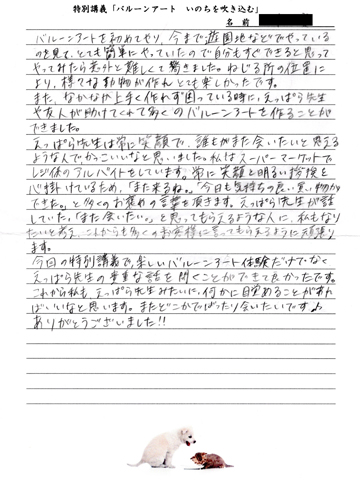 特別講義「バルーンアート　いのちを吹き込む」
名前
バルーンアートを初めてやり、今まで遊園地などでやっている
のを見て、とても簡単にやっていたので自分もすぐできると思って
やってみたら意外と難しくて驚きました。ねじる所の位置に
より、様々な動物が作れとても楽しかったです。
また、なかなか上手く作れず困っている時に、えっぱら先生
や友人が助けてくれて多くのバルーンアートを作ることが
できました。
えっぱら先生は常に笑顔で、誰もがまた会いたいと思える
ような人でかっこいいなと思いました。私はスーパーマーケットで
レジ係のアルバイトをしています。常に笑顔と明るい挨拶を
心掛けているため、「また来るね。」「今日も気持ちの良い買い物が
できた。」と多くのお褒めの言葉を頂きます。えっぱら先生が話
していた。「また会いたい。」と思ってもらえるような人に、私もなり
たいと考え、これからも多くのお客様に言ってもらえるように頑張り
ます。
今回の特別講義で、楽しいバルーンアート体験だけでなく
えっぱら先生の貴重な話を聞くことができて良かったです。
これから私も、えっぱら先生みたいに、何かに目覚めることがあれ
ばいいなと思います。またどこかでばったり会いたいです♪
ありがとうございました!!